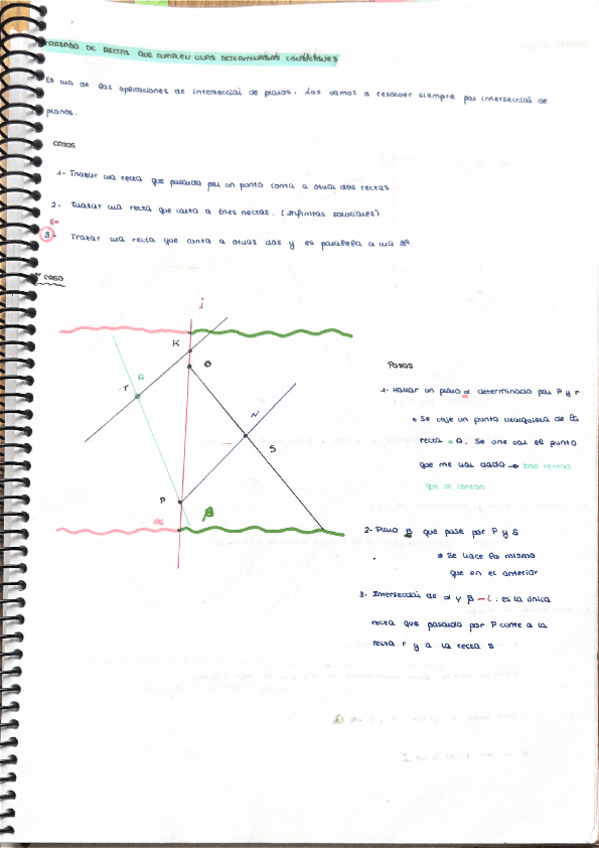 TRAZADO DE RECTAS QUE CUMPLEN UNAS DETERMINADAS CONDICIONES
Es una de las aplicaciones de intersección de planos. Las vamos a resolver siempre por intersección de
planos.
CASOS
1- Trazar una recta que pasando por un punto corta a otras dos rectas
2. Trazar una recta que corta a tres rectas. (Infinitas soluciones)
3. Trazar una recta que corta a otras dos y es paralela a una 3ª
1º CASO
i
K
O
A
r
N
S
P
α
β
Pasos
1- Hallar un plano α determinado por P y r
Se coje un punto cualquiera de la
recta A. Se une con el punto
que me han dado → Dos rectas
que se cortan
2- Plano β que pase por P y S
* Se hace lo mismo
que en el anterior
3. Intersección de α y β - i: es la única
recta que pasando por P corte a la
recta r y a la recta s